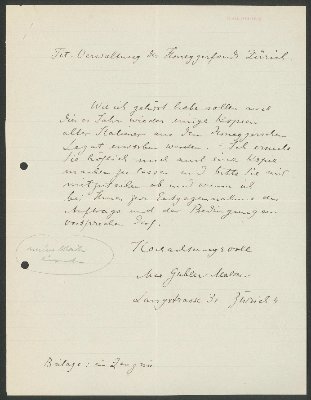 Tit. Verwaltung des Honeggerfonds Zürich
Wie ich gehört habe sollen auch
dieses Jahr wieder einige Kopien
alter Maler aus dem Honeggerschen
Legat erworben werden. - Ich ersuche
Sie höflich mich auch eine Kopie
machen zu lassen und bitte Sie mir
mitzuteilen ob und wann ich
bei Ihnen zur Entgegennahme des
Auftrags und der Bedingungen
vorsprechen darf.
Hochachtungsvoll
Max Gubler Maler
Langstrasse Zürich 4
Beilage: ein Zeugnis